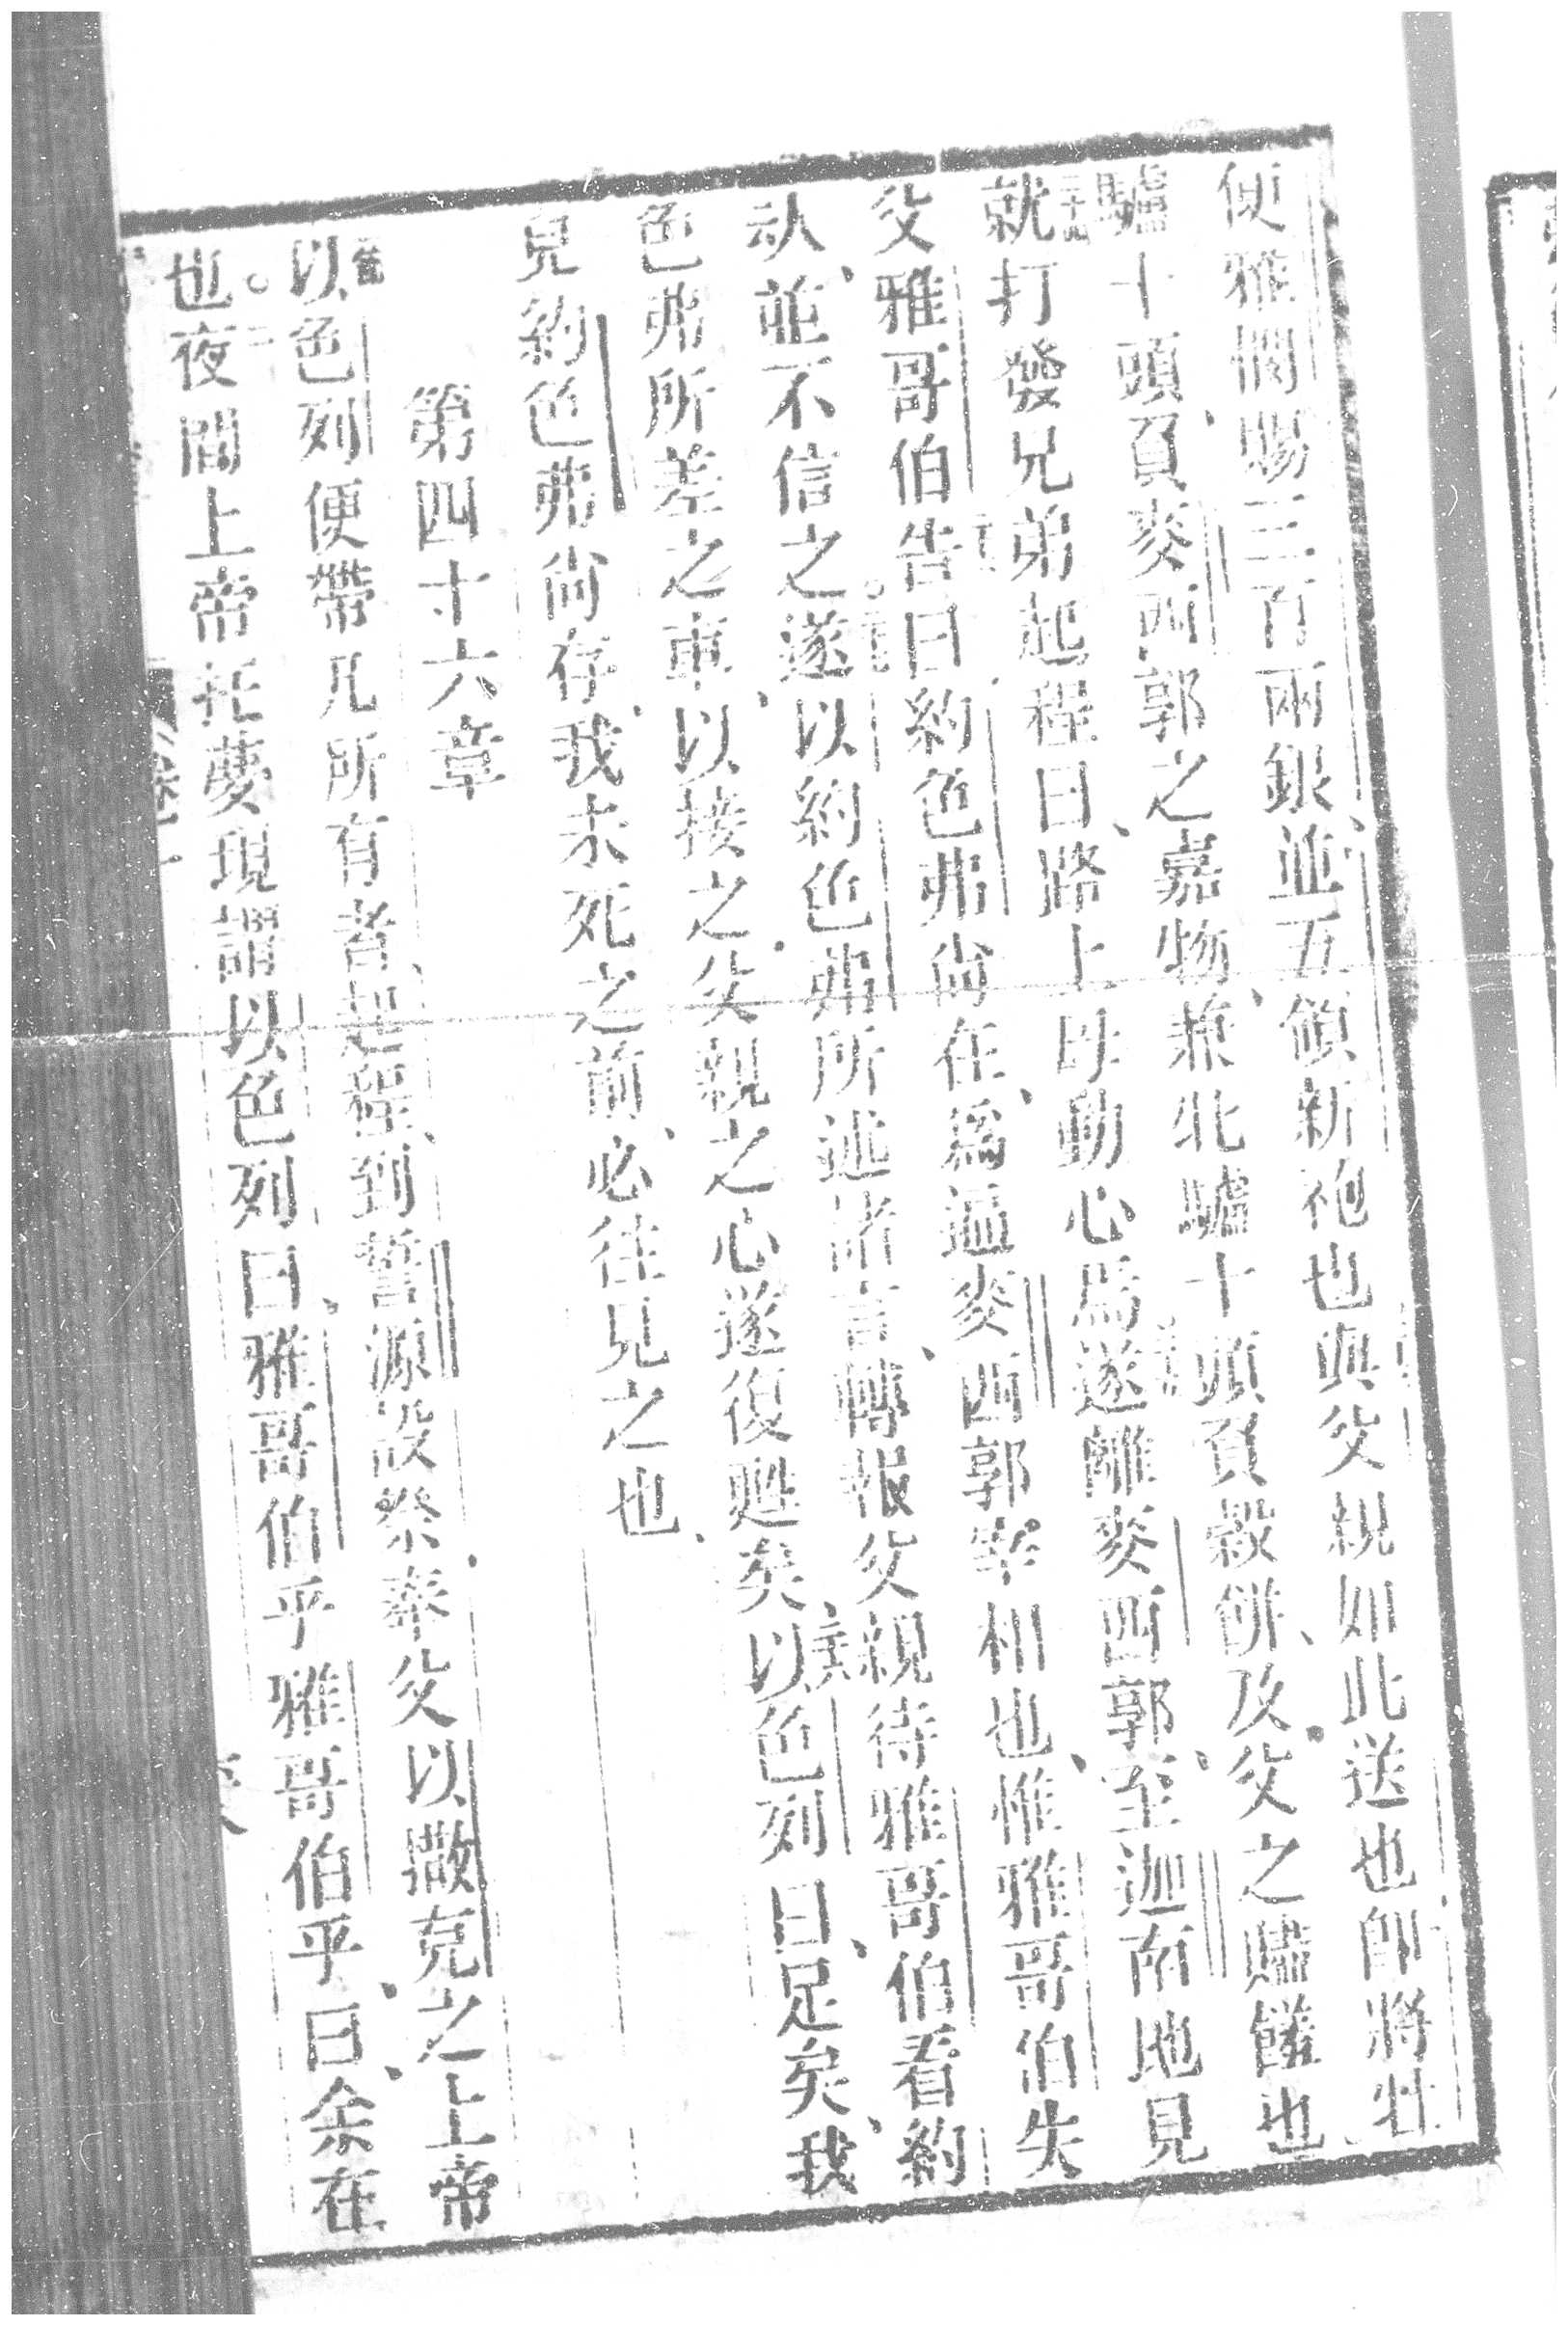 便雅憫賜三百兩銀、並五領新袍也與父親如此送也卽將牡
驢十頭、負麥西郭之嘉物、兼牝驢十頭負穀餅、及父之贐饈也
就打發兄弟起程曰、路上毋動心焉遂離麥西郭、至迦南地見
父雅哥伯告曰、約色弗尚在、爲逼麥西郭宰相也、惟雅哥伯失
訞、並不信之遂以約色弗所述諸言、轉報父親待雅哥伯看約
色弗所差之車、以接之父親之心遂復甦矣、以色列曰、足矣、我
兒約色弗尚存、我未死之前、必往見之也
第四十六章
以色列便帶凡所有者、起程、到誓源設祭奉父以撒克之上帝
也夜間上帝托夢現謂以色列曰、雅哥伯乎雅哥伯乎、曰、余在